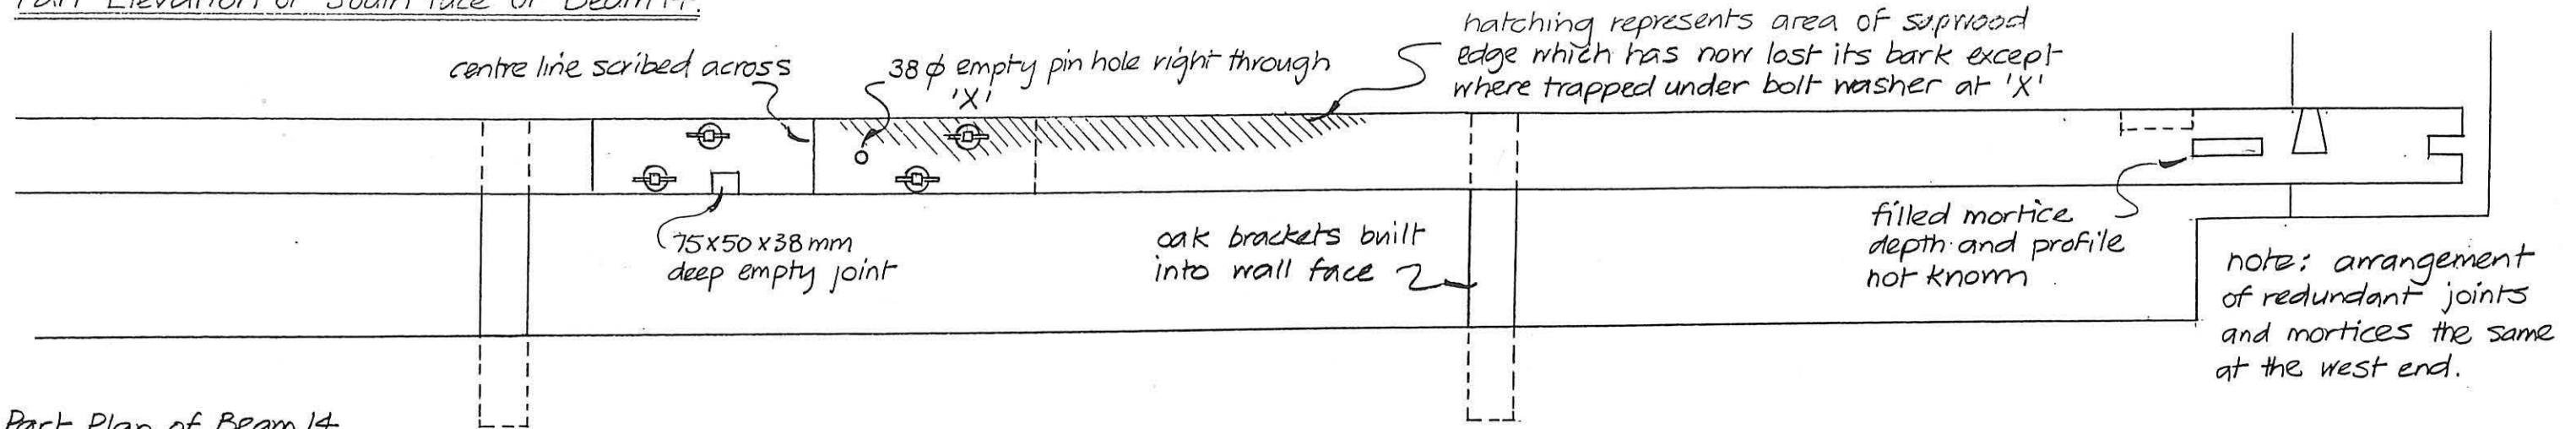 Part Elevation of South face of Beam 14.
centre line scribed across
38 φ empty pin hole right through
'X'
hatching represents area of sapwood
edge which has now lost its bark except
where trapped under bolt washer at 'X'
75x50x38mm
deep empty joint
oak brackets built
into wall face
filled mortice
depth and profile
not known
note: arrangement
of redundant joints
and mortices the same
at the west end.
Part Plan of Beam 14